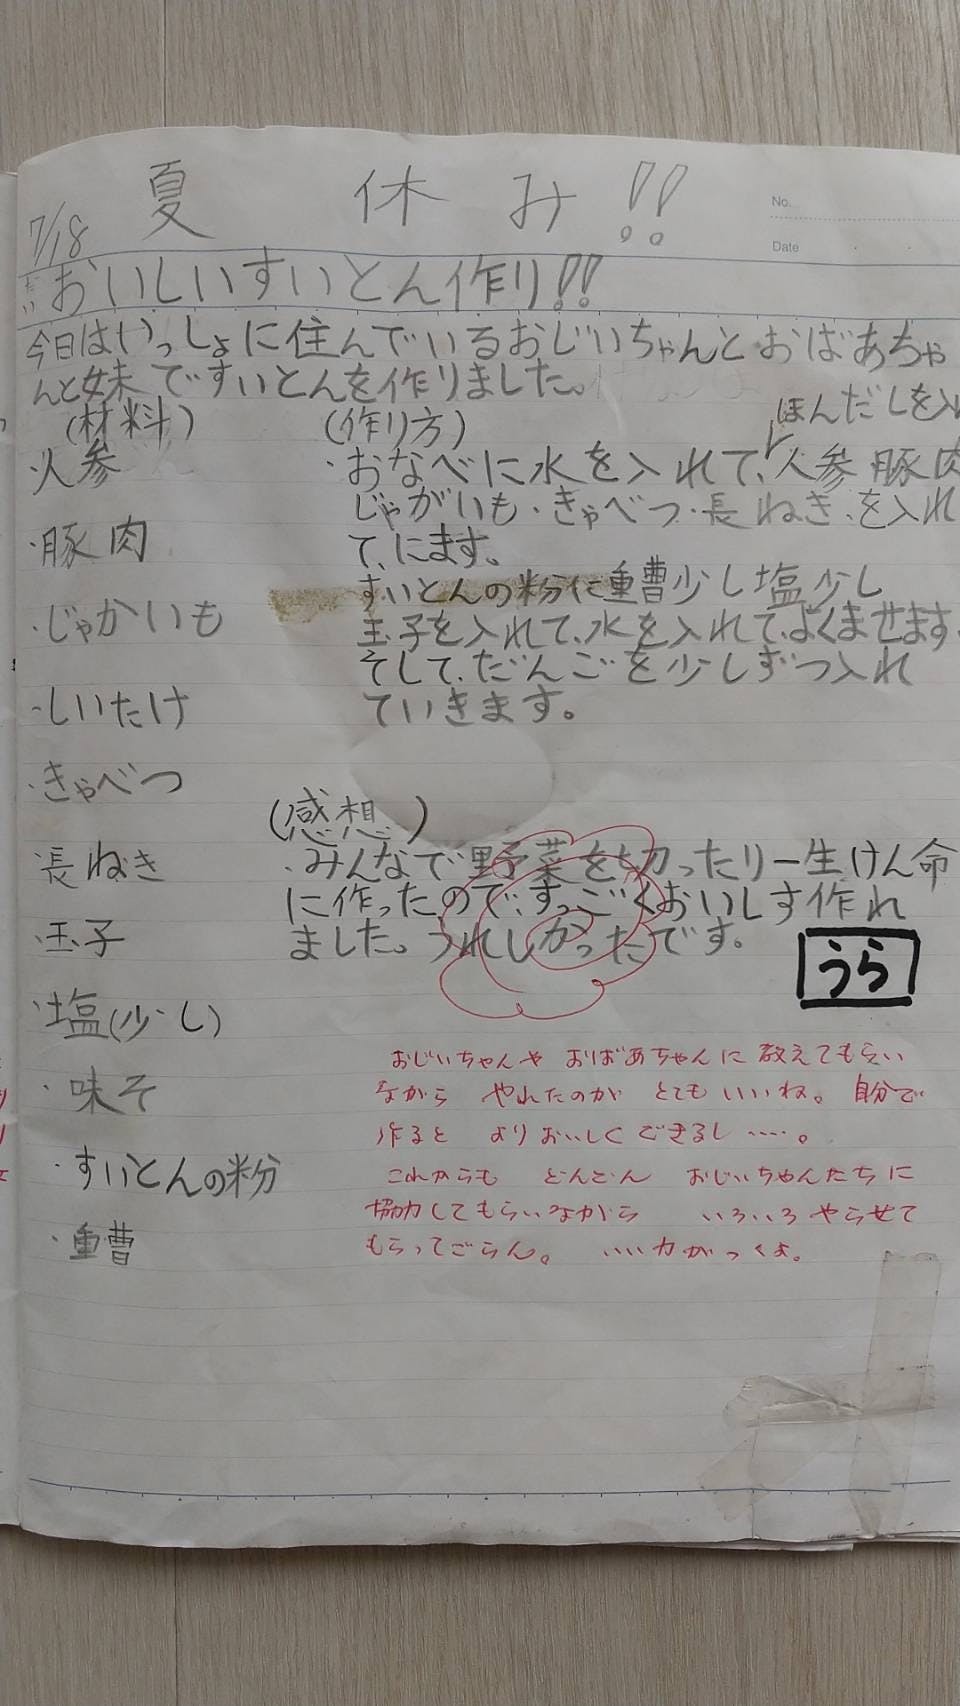 夏休み!!
No.
7/18
Date
だい おいしいすいとん作り!!
今日はいっしょに住んでいるおじいちゃんとおばあちゃ
んと妹ですいとんを作りました。
(材料)
(作り方)
ほんだしを入
・人参
・おなべに水を入れて、人参豚肉
じゃがいも・きゃべつ・長ねぎ、を入れ
・豚肉
て、にます。
すいとんの粉に重曹少し塩少し
・じゃがいも
玉子を入れて、水を入れて、よくまぜます。
そして、だんごを少しずつ入れ
・しいたけ
ていきます。
・きゃべつ
(感想)
・長ねぎ
・みんなで野菜を切ったり一生けん命
に作ったので、すっごくおいしす作れ
・玉子
ました。うれしかったです。
うら
・塩(少し)
おじいちゃんや おばあちゃんに 教えてもらい
・味そ
ながら やれたのが とてもいいね。自分で
作ると よりおいしくできるし……。
・すいとんの粉
これからも どんどん おじいちゃんたちに
協力してもらいながら いろいろやらせて
・重曹
もらってごらん。 いい力がつくよ。